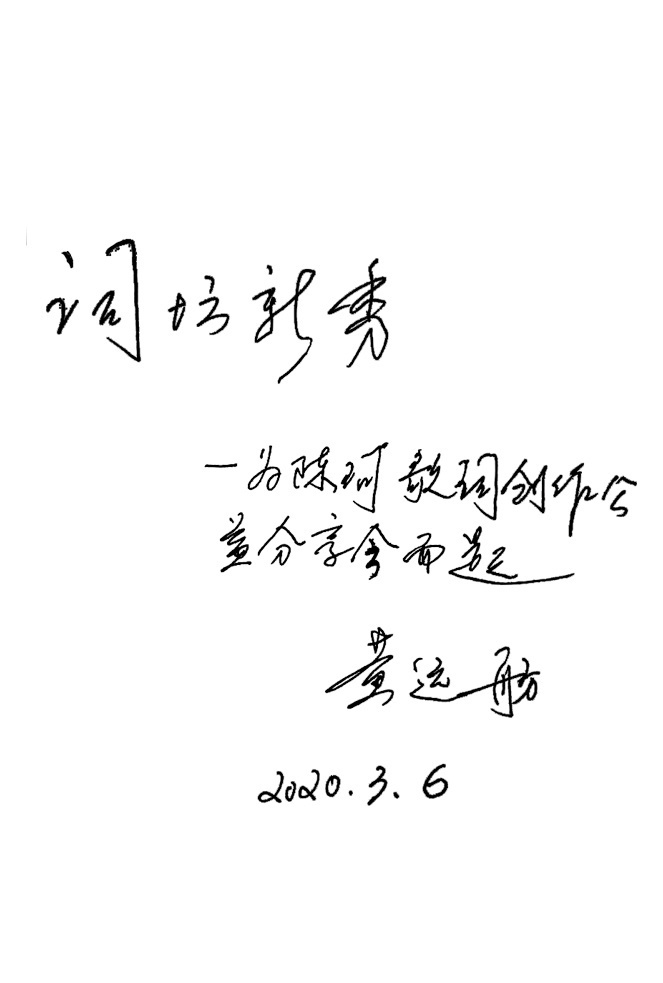 词坛新秀
一为陈珂歌词创作公
益分享会而题
黄远舫
2020.3.6